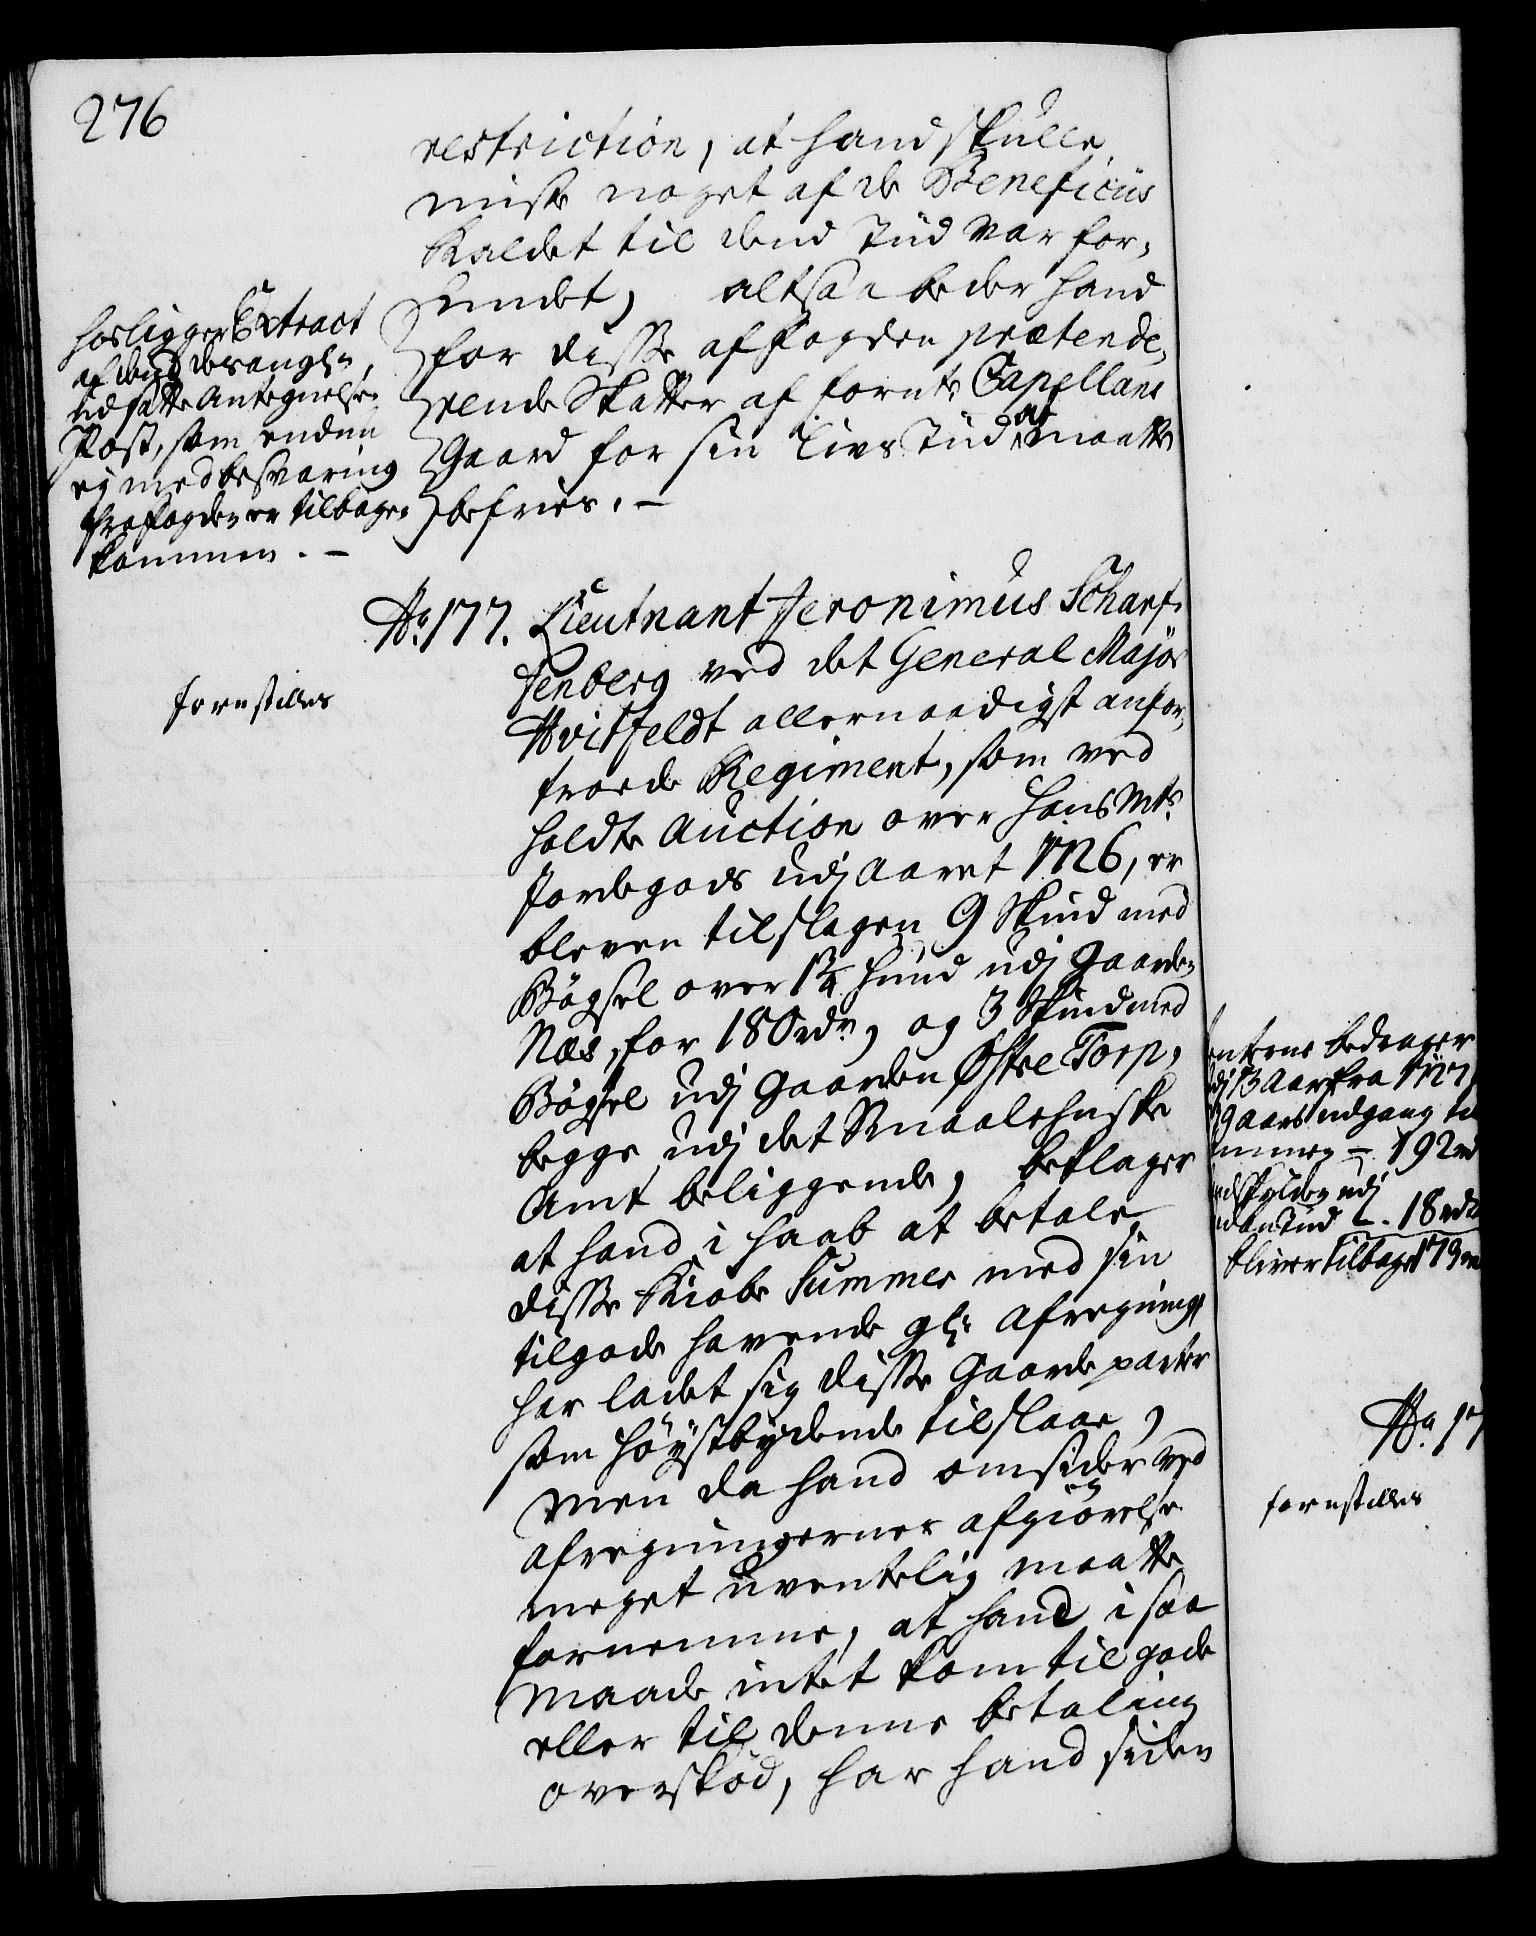 276
restriction, at hand skulle
miste noget af de Beneficiis
Kaldet til dend Tiid var for-
undet, altsaa beder hand
for disse af fogden prætende-
rende Skatter af fornte Capellans
Gaard for sin Livs Tiid at maatte
befries. -
hosligger Extract
af den desangle
udsatte Antegnelse
Post, som endnu
ej med besvaring
fra fogden er tilbage
kommen. -
No. 177. Lieutnant Jeronimus Scharf-
fenberg ved det General Major
Hvitfeldt allernaadigst anfor-
troede Regiment, som ved
holdte Auction over Hans Mts
Jordegods udj Aaret 1726, er
bleven tilslagen 9 Skind med
Bögsel over 1¾ hund udj Gaarden
Næs, for 180 rdr, og 3 Skind med
Bögsel udj Gaarden Østre Torp,
begge udj det Smaalehnske
Amt beliggende, beklager
at hand i haab at betale
disse Kiøbe Summer med sin
tilgode havende gle afregning
har ladet sig disse Gaarde parter
som höystbydende tilslaae,
men da hand omsider ved
afregningernes afgiørelse
meget uventelig maatte
fornemme, at hand i saa
maade intet kom til gode
eller til denne betaling
overskød, har hand siden
forestilles
Renterne bedrager
udj 13 Aar fra 1727
39 Aars udgang til
summen - 192 rd
Landskylden udj
sadan Tiid - 18 rdr
bliver tilbage 173 rd
No. 17
forestilles